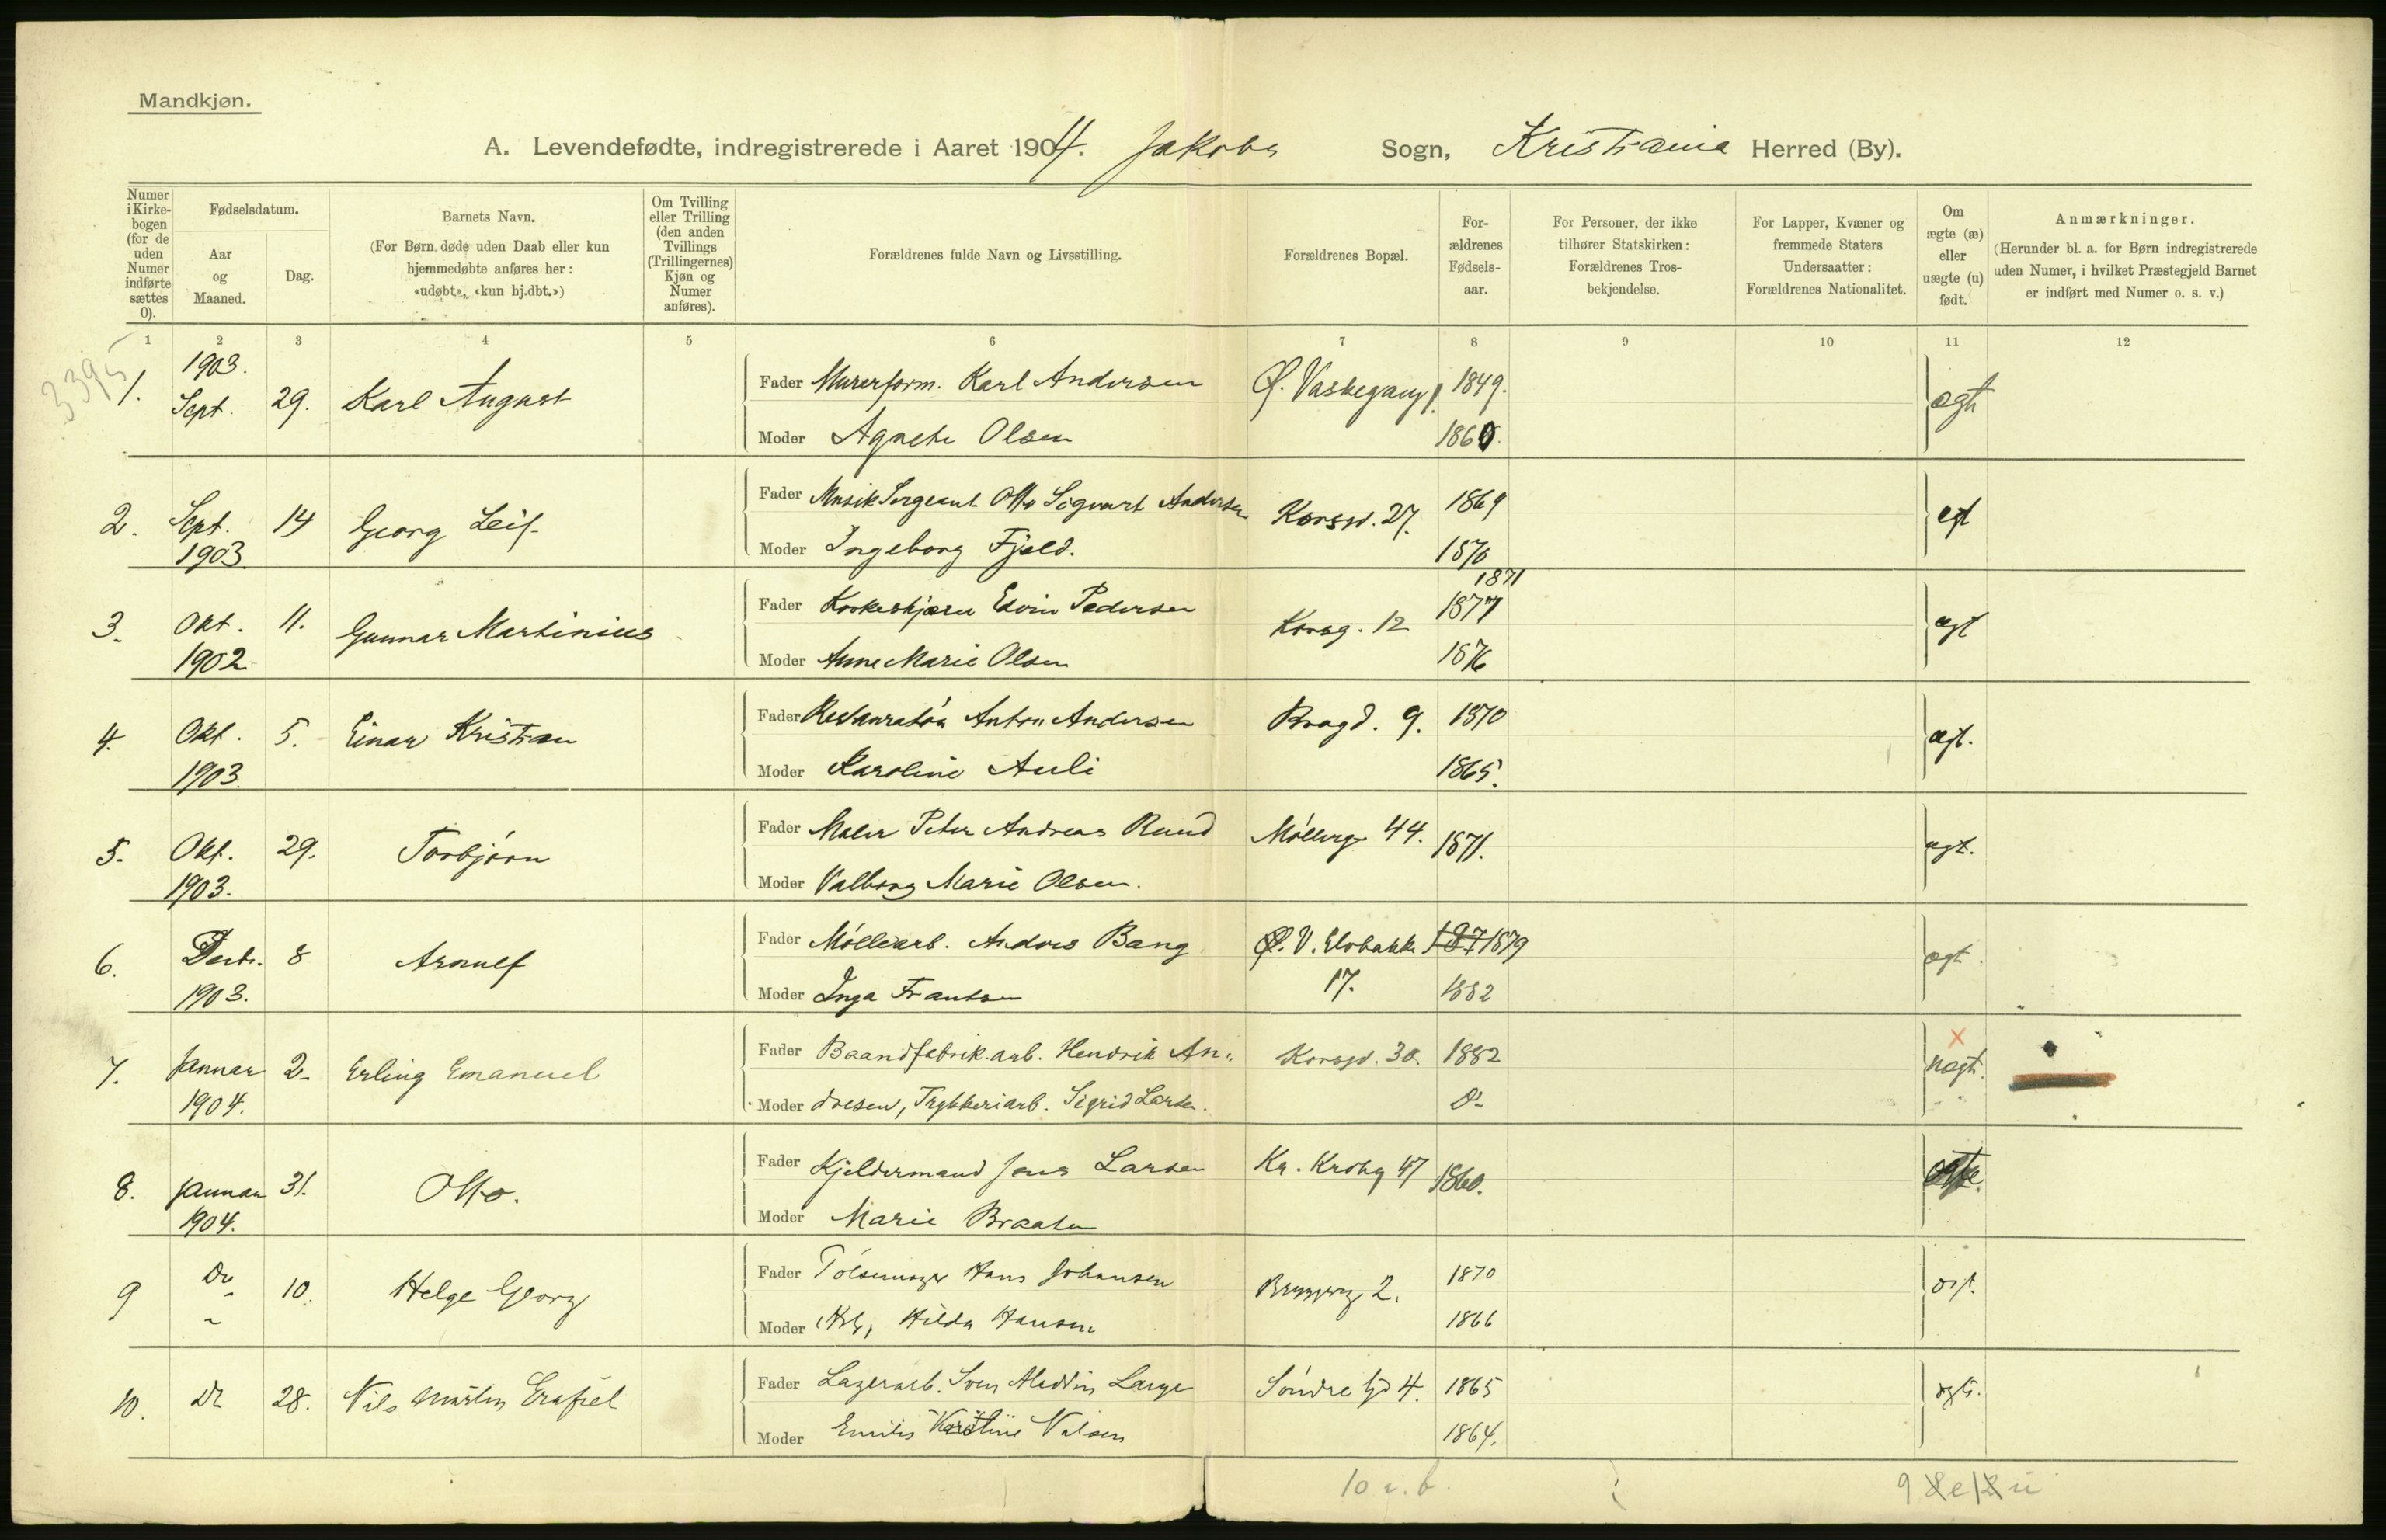 Mandkjøn.
A. Levendefødte, indregistrerede i Aaret 1904. Jakobs Sogn, Kristiania Herred (By).
Numer i Kirkebogen (for de uden Numer indførte sættes 0).
Fødselsdatum.
Aar og Maaned.
Dag.
Barnets Navn.
(For Børn døde uden Daab eller kun hjemmedøbte anføres her: «udøbt», «kun hj.dbt.»)
Om Tvilling eller Trilling (den anden Tvillings (Trillingernes) Kjøn og Numer anføres).
Forældrenes fulde Navn og Livsstilling.
Forældrenes Bopæl.
Forældrenes Fødselsaar.
For Personer, der ikke tilhører Statskirken: Forældrenes Trosbekjendelse.
For Lapper, Kvæner og fremmede Staters Undersaatter: Forældrenes Nationalitet.
Om ægte (æ) eller uægte (u) født.
Anmærkninger.
(Herunder bl. a. for Børn indregistrerede uden Numer, i hvilket Præstegjeld Barnet er indført med Numer o. s. v.)
1 2 3 4 5 6 7 8 9 10 11 12
3395
1. 1903. Sept. 29. Karl August Fader Murerform. Karl Andersen Ø. Vaskegang 1. 1849. ægte
Moder Agnete Olsen 1860.
2. Sept. 14 Georg Leif Fader Musik Sergeant Otto Sigvart Andersen Korsgd. 27. 1869 egt
1903 Moder Ingeborg Fjeld. 1870
1871
3. Okt. 11. Gunnar Martinius Fader Kookeskjører Edvin Pedersen Korsg. 12 1877 ægt
1902 Moder Anne Marie Olsen 1876
4. Okt. 5. Einar Kristian Fader Restauratør Anton Andersen Brogd. 9. 1870 ægt.
1903. Moder Karoline Auli 1865.
5. Okt. 29. Torbjørn Fader Maler Peter Andreas Ruud Møllerg 44. 1871. ægt.
1903. Moder Valborg Marie Olsen.
6. Decbr. 8 Arnulf Fader Møllearb. Anders Bang Ø. V. Elvbakke 187 1879 ægt.
1903. Moder Inga Frantsen 17. 1882
7. Januar 2. Erling Emanuel Fader Baandfabrik.arb. Hendrik An- Korsgd. 30. 1882 uægt.
1904. Moder dresen, Trykkeriarb. Sigrid Larsen. Do
8. Januar 31. Otto. Fader Kjeldermand Jens Larsen Kr. Krohg 47 1860. ægte
1904. Moder Marie Braaten
9 Do 10. Helge Georg Fader Pølsemager Hans Johansen Bryggerg 2. 1870 ægt.
Moder Hilda Hansen 1866
10. Do 28. Nils Martin Fader Lagerarb. Sven Lange Søndre gd 4. 1865 ægte.
Moder Emilie Karoline Nilsen 1864.
10 i. b.
9